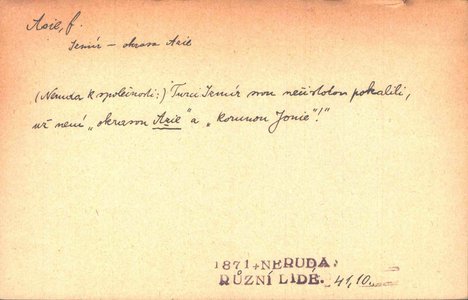 Asie, f.
Izmir – okrasa Asie
(Neruda k společnosti:) Turci Izmir svou nečistotou pokálili,
už není „okrasou Asie" a „korunou Jonie"!"
1871 NERUDA:
RŮZNÍ LIDÉ. 41,10